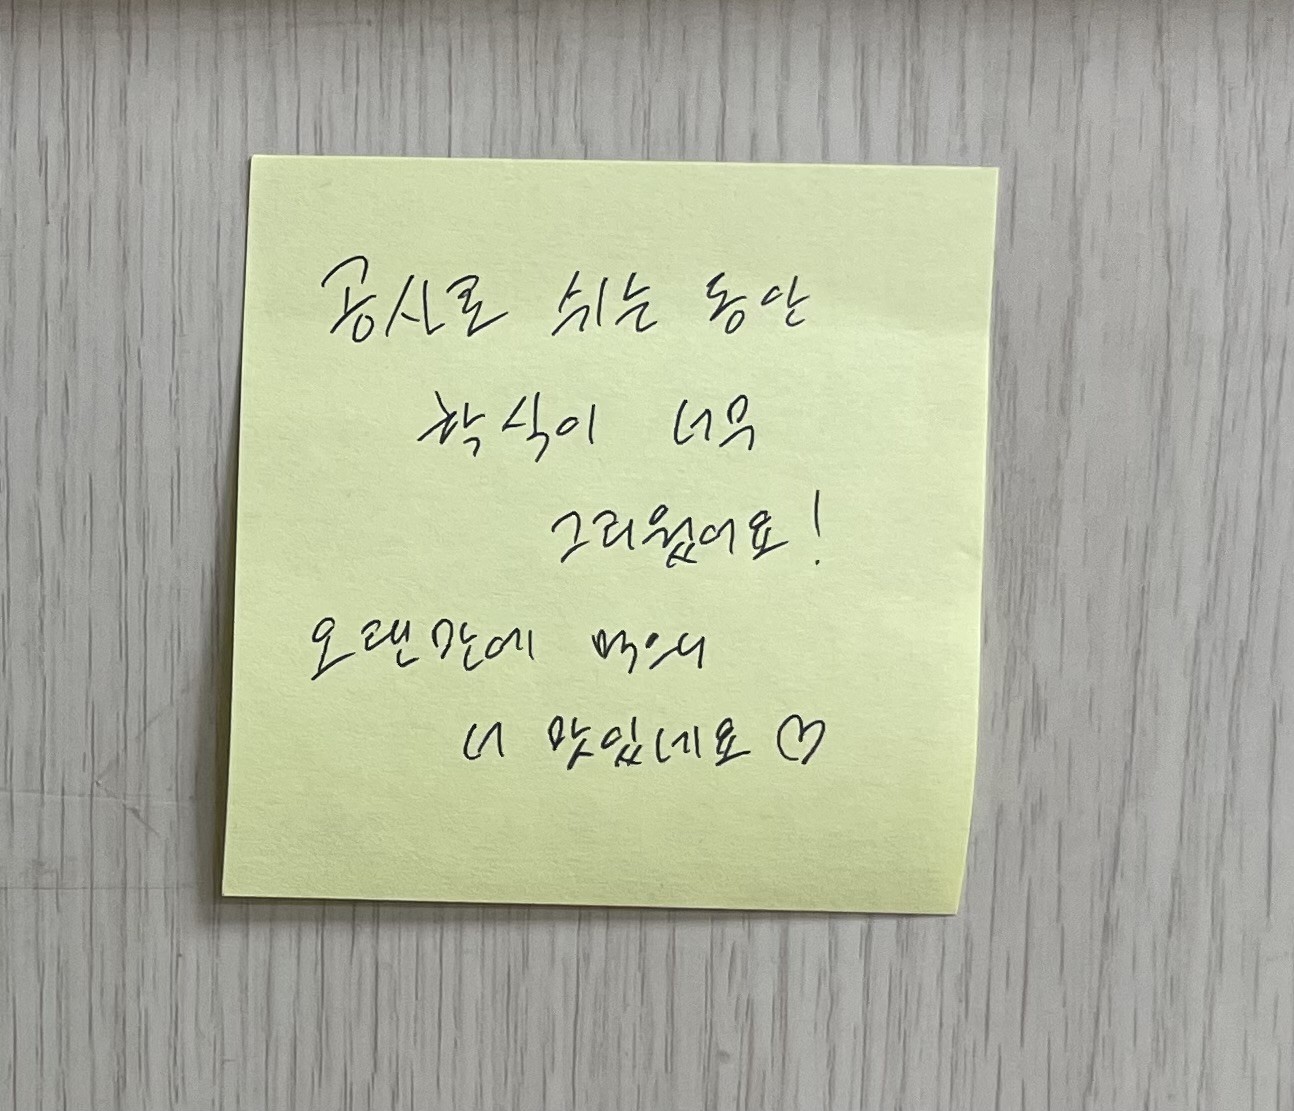 공사로 쉬는 동안
학식이 너무
그리웠어요!
오랜만에 먹으니
더 맛있네요 ♡